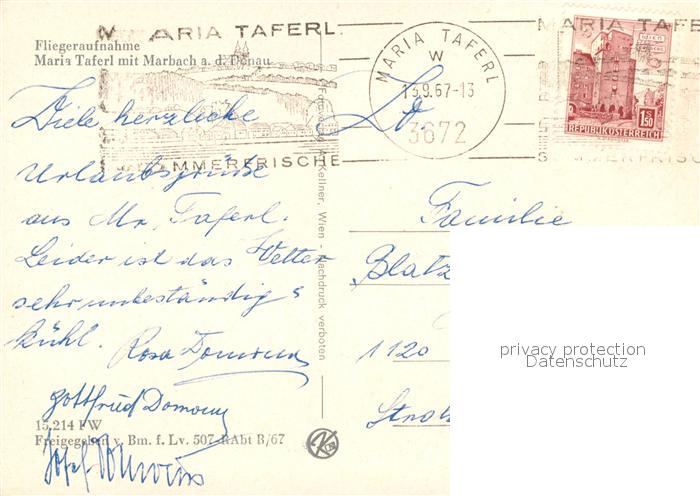 MARIA TAFERL
MARIA TAFERL
W
13.9.67-13
3672
SOMMERFRISCHE
MARIA TAFE
MMERFRISC
1S50
REPUBLIK ÖSTERREICH
Fliegeraufnahme
Maria Taferl mit Marbach a. d. Donau
Viele herzliche
Urlaubsgrüße
aus M. Taferl.
Leider ist das Wetter
sehr unbeständig u
kühl.
Rosa
Gottfried
Josef
15.214 FW
Freigegeben v. Bm. f. Lv. 507-RAbt B/67
Kellner, Wien Nachdruck verboten
Familie
Blatz
1120
privacy protection
Datenschutz